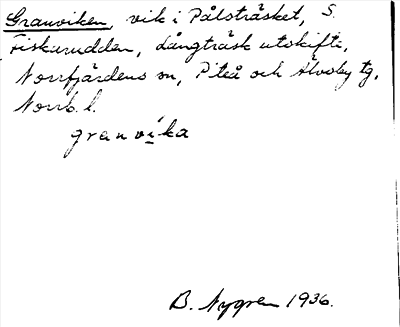 Granviken, vik i Pålsträsket, S.
Fiskarudden, Långträsk utskifte,
Norrfjärdens sn, Piteå och Älvsby tg,
Norrb. l.
granvika
B. Nygren 1936.